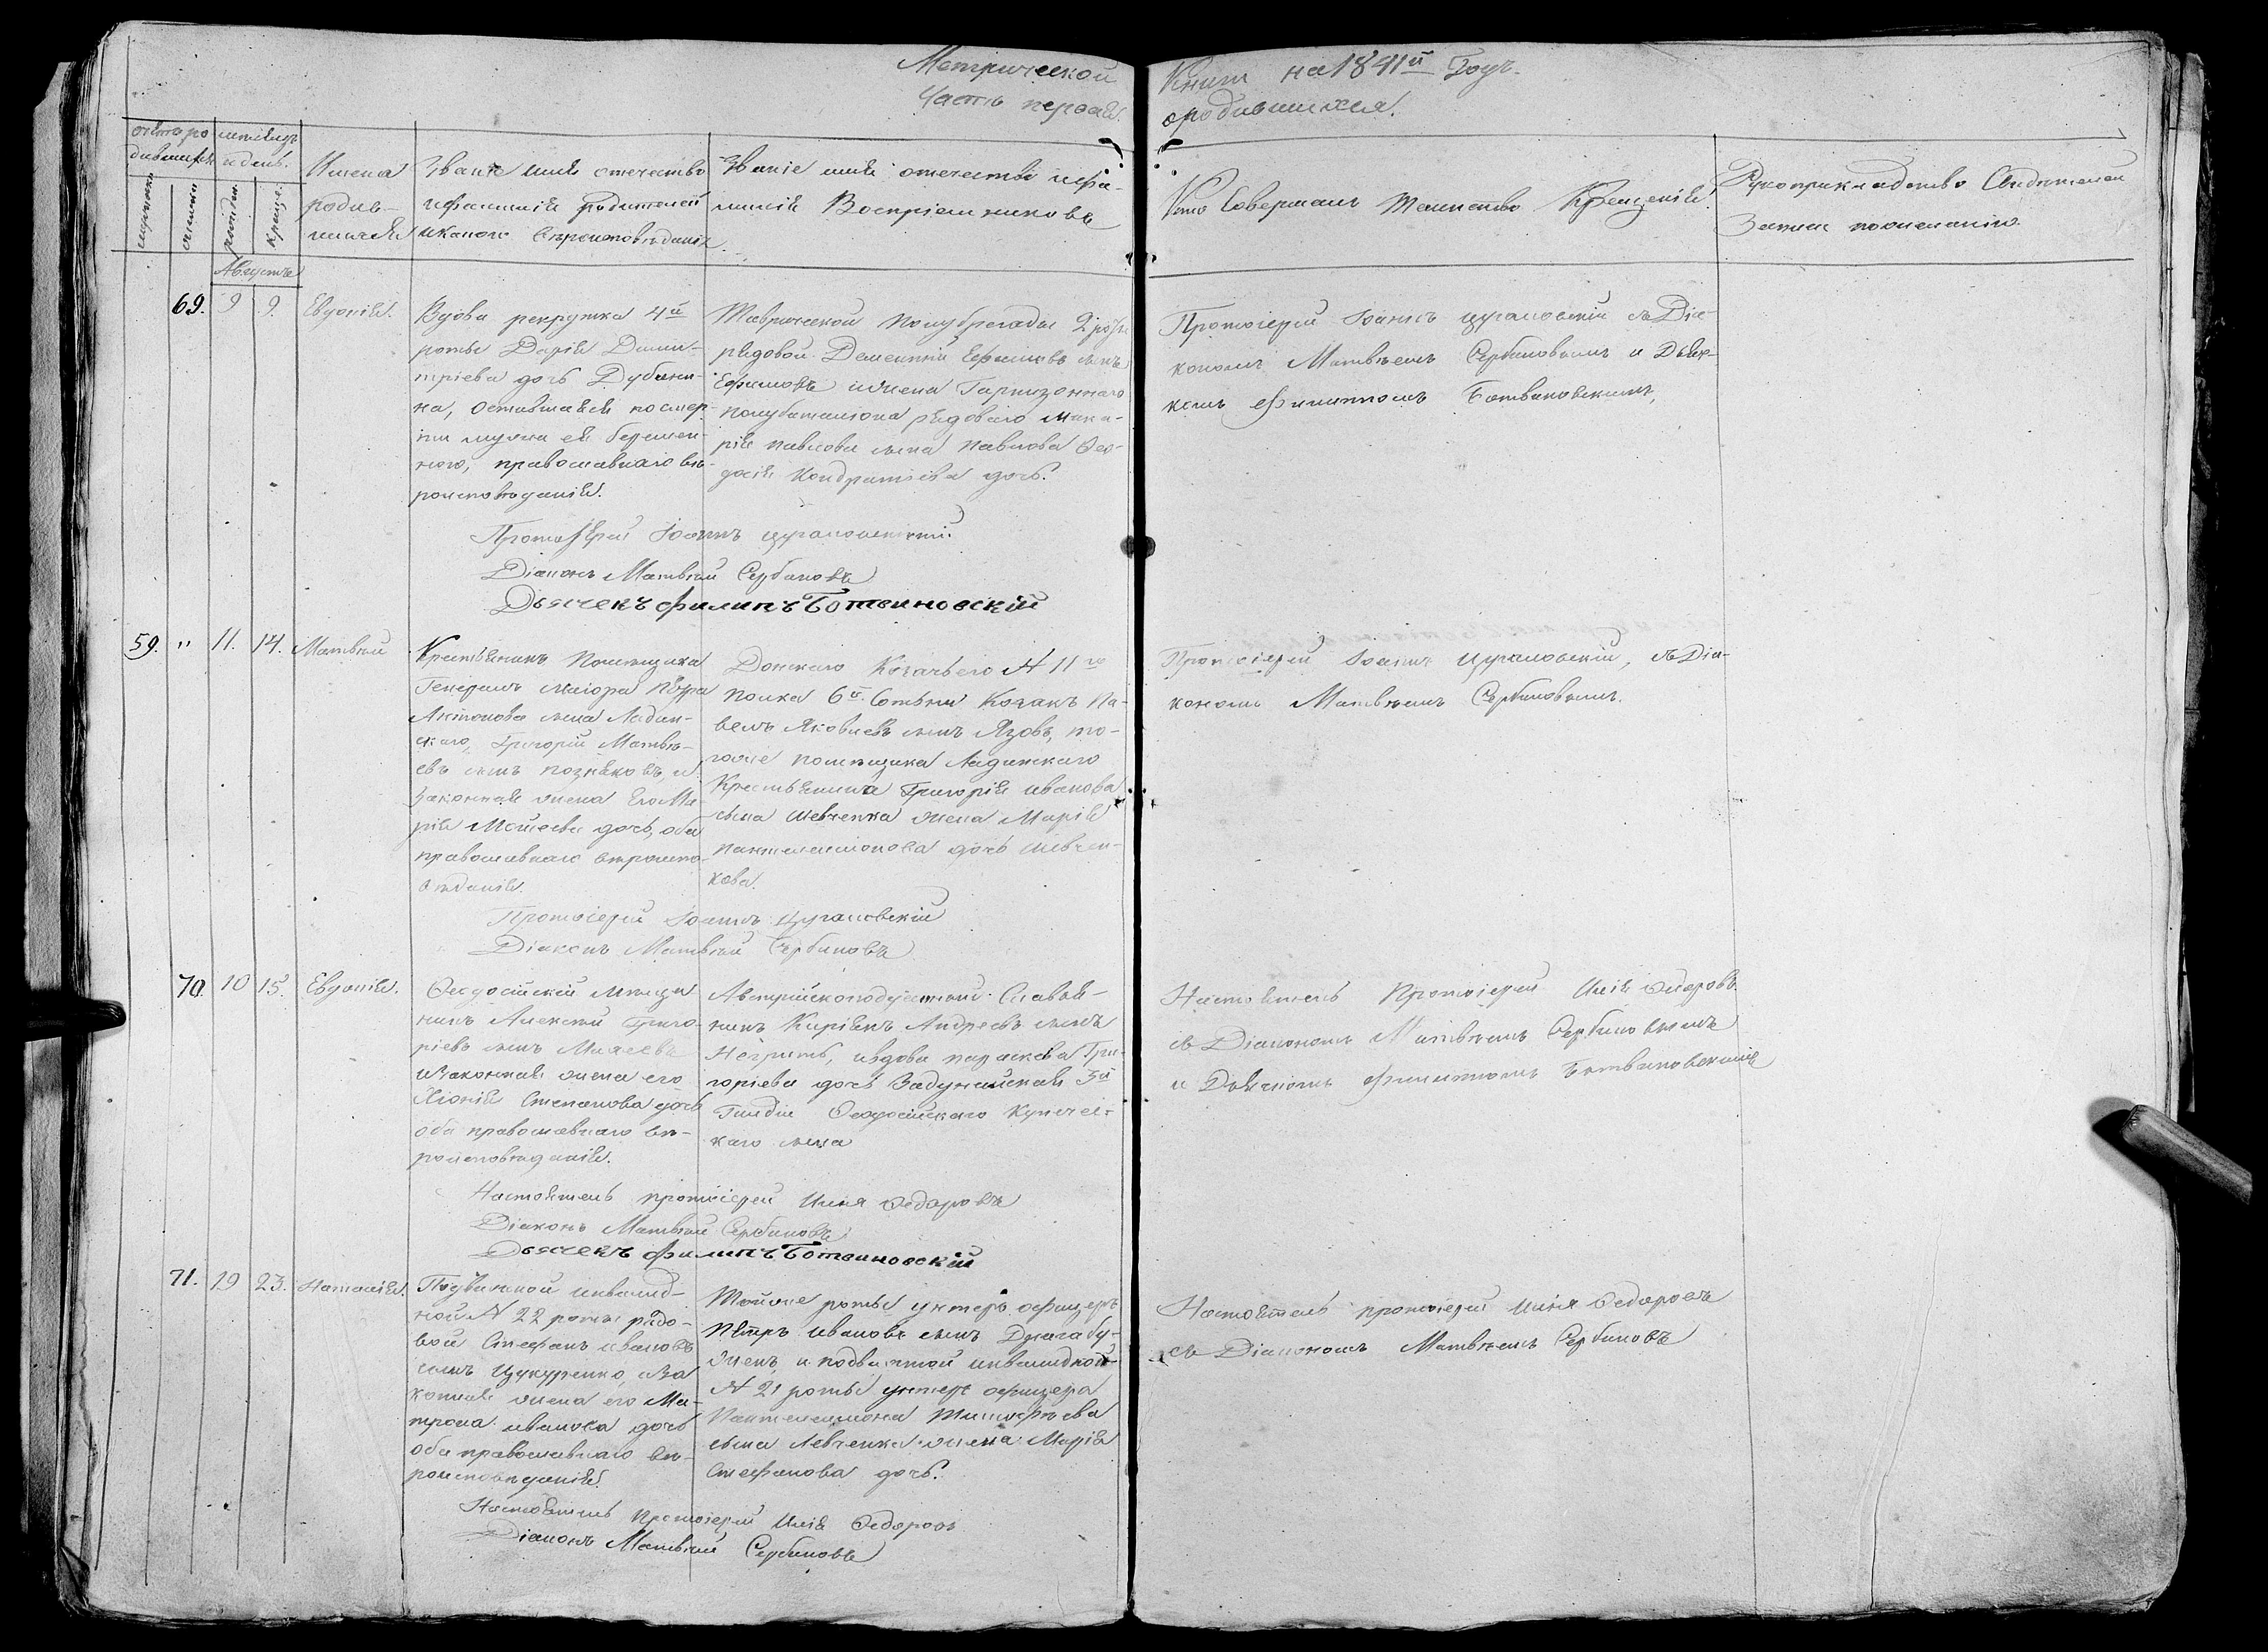 Метрической
Часть первая.
Книги на 1841й Годъ.
о родившихся.
счетъ ро
дившихся
мѣсяцъ
и день.
мужеска
женска
рожден.
крещен.
Имена
родив-
шихся
Званіе имя отечество
и фамилія родителей
и какого вѣроисповѣданія.
Званіе имя отечество и фа-
милія Воспріемниковъ
Кто Совершалъ Таинство Крещенія.
Рукоприкладство Свидѣтелей
Записи по желанію.
Августъ
69. 9 9. Евдокія.
Вдова рекрутка 4й
роты Дарія Дими-
тріева дочь Дубини-
на, оставшаяся по смер-
ти мужа ея беремен-
ною, православнаго вѣ-
роисповѣданія.
Таврической полубрегады 2 роты
рядовой Дементій Ефимовъ сынъ
Ефимовъ и жена Гарнизоннаго
полубаталіона рядоваго Мака-
рія Павлова сына Павлова Ѳео-
досія Кондратіева дочь.
Протоіерей Іоаннъ съ Діа-
кономъ Матвѣемъ Сербиновымъ и Дьяч-
комъ Филиппомъ Ботвиновскимъ,
Протоіерей Іоаннъ
Діаконъ Матвѣй Сербиновъ
Дьячекъ Филипъ Ботвиновскій
59. " 11. 14. Матвѣй
Крестьянинъ Помѣщика
Генералъ Маіора Петра
Антонова сына Ладин-
скаго, Григорій Матвѣ-
евъ сынъ Позняковъ, и
законная жена его Ма-
рія Моисеева дочь, оба
православнаго вѣроиспо-
вѣданія.
Донскаго Козачьего № 11го
полка 6й Сотни Козакъ Па-
велъ Яковлевъ сынъ Язовъ, то-
гоже помѣщика Ладинскаго
Крестьянина Григорія Иванова
сына Шевченка жена Марія
Пантелеимонова дочь Шевчен-
кова.
Протоіерей Іоаннъ съ Діа-
кономъ Матвѣемъ Сербиновымъ.
Протоіерей Іоаннъ
Діаконъ Матвѣй Сербиновъ
70. 10 15. Евдокія.
Ѳеодосійскій мѣща-
нинъ Алексѣй Григо-
ріевъ сынъ
и законная жена его
Хіонія Степанова дочь
оба православнаго вѣ-
роисповѣданія.
Австрійскоподданный Славя-
нинъ Киріякъ Андреевъ сынъ
и вдова Параскева Гри-
горіева дочь Задунайская 3й
Гилдіи Ѳеодосійскаго Купечес-
каго сына
Настоятель Протоіерей Илія Ѳедоровъ
съ Діакономъ Матвѣемъ Сербиновымъ
и Дьячкомъ Филиппомъ Ботвиновскимъ
Настоятель протоіерей Илія Ѳедоровъ
Діаконъ Матвѣй Сербиновъ
Дьячекъ Филипъ Ботвиновскій
71. 19 23. Наталія.
Подвижной инвалид-
ной № 22 роты рядо-
вой Стефанъ Ивановъ
сынъ Цукуренко, и за-
конная жена его Ма-
трона Иванова дочь
оба православнаго вѣ-
роисповѣданія.
Тойже роты унтеръ офицеръ
Петръ Ивановъ сынъ
и подвижной инвалидной
№ 21 роты унтеръ офицера
Пантелеимона Тимофѣева
сына Левченка жена Марія
Стефанова дочь.
Настоятель протоіерей Илія Ѳедоровъ
съ Діакономъ Матвѣемъ Сербиновъ
Настоятель Протоіерей Илія Ѳедоровъ
Діаконъ Матвѣй Сербиновъ